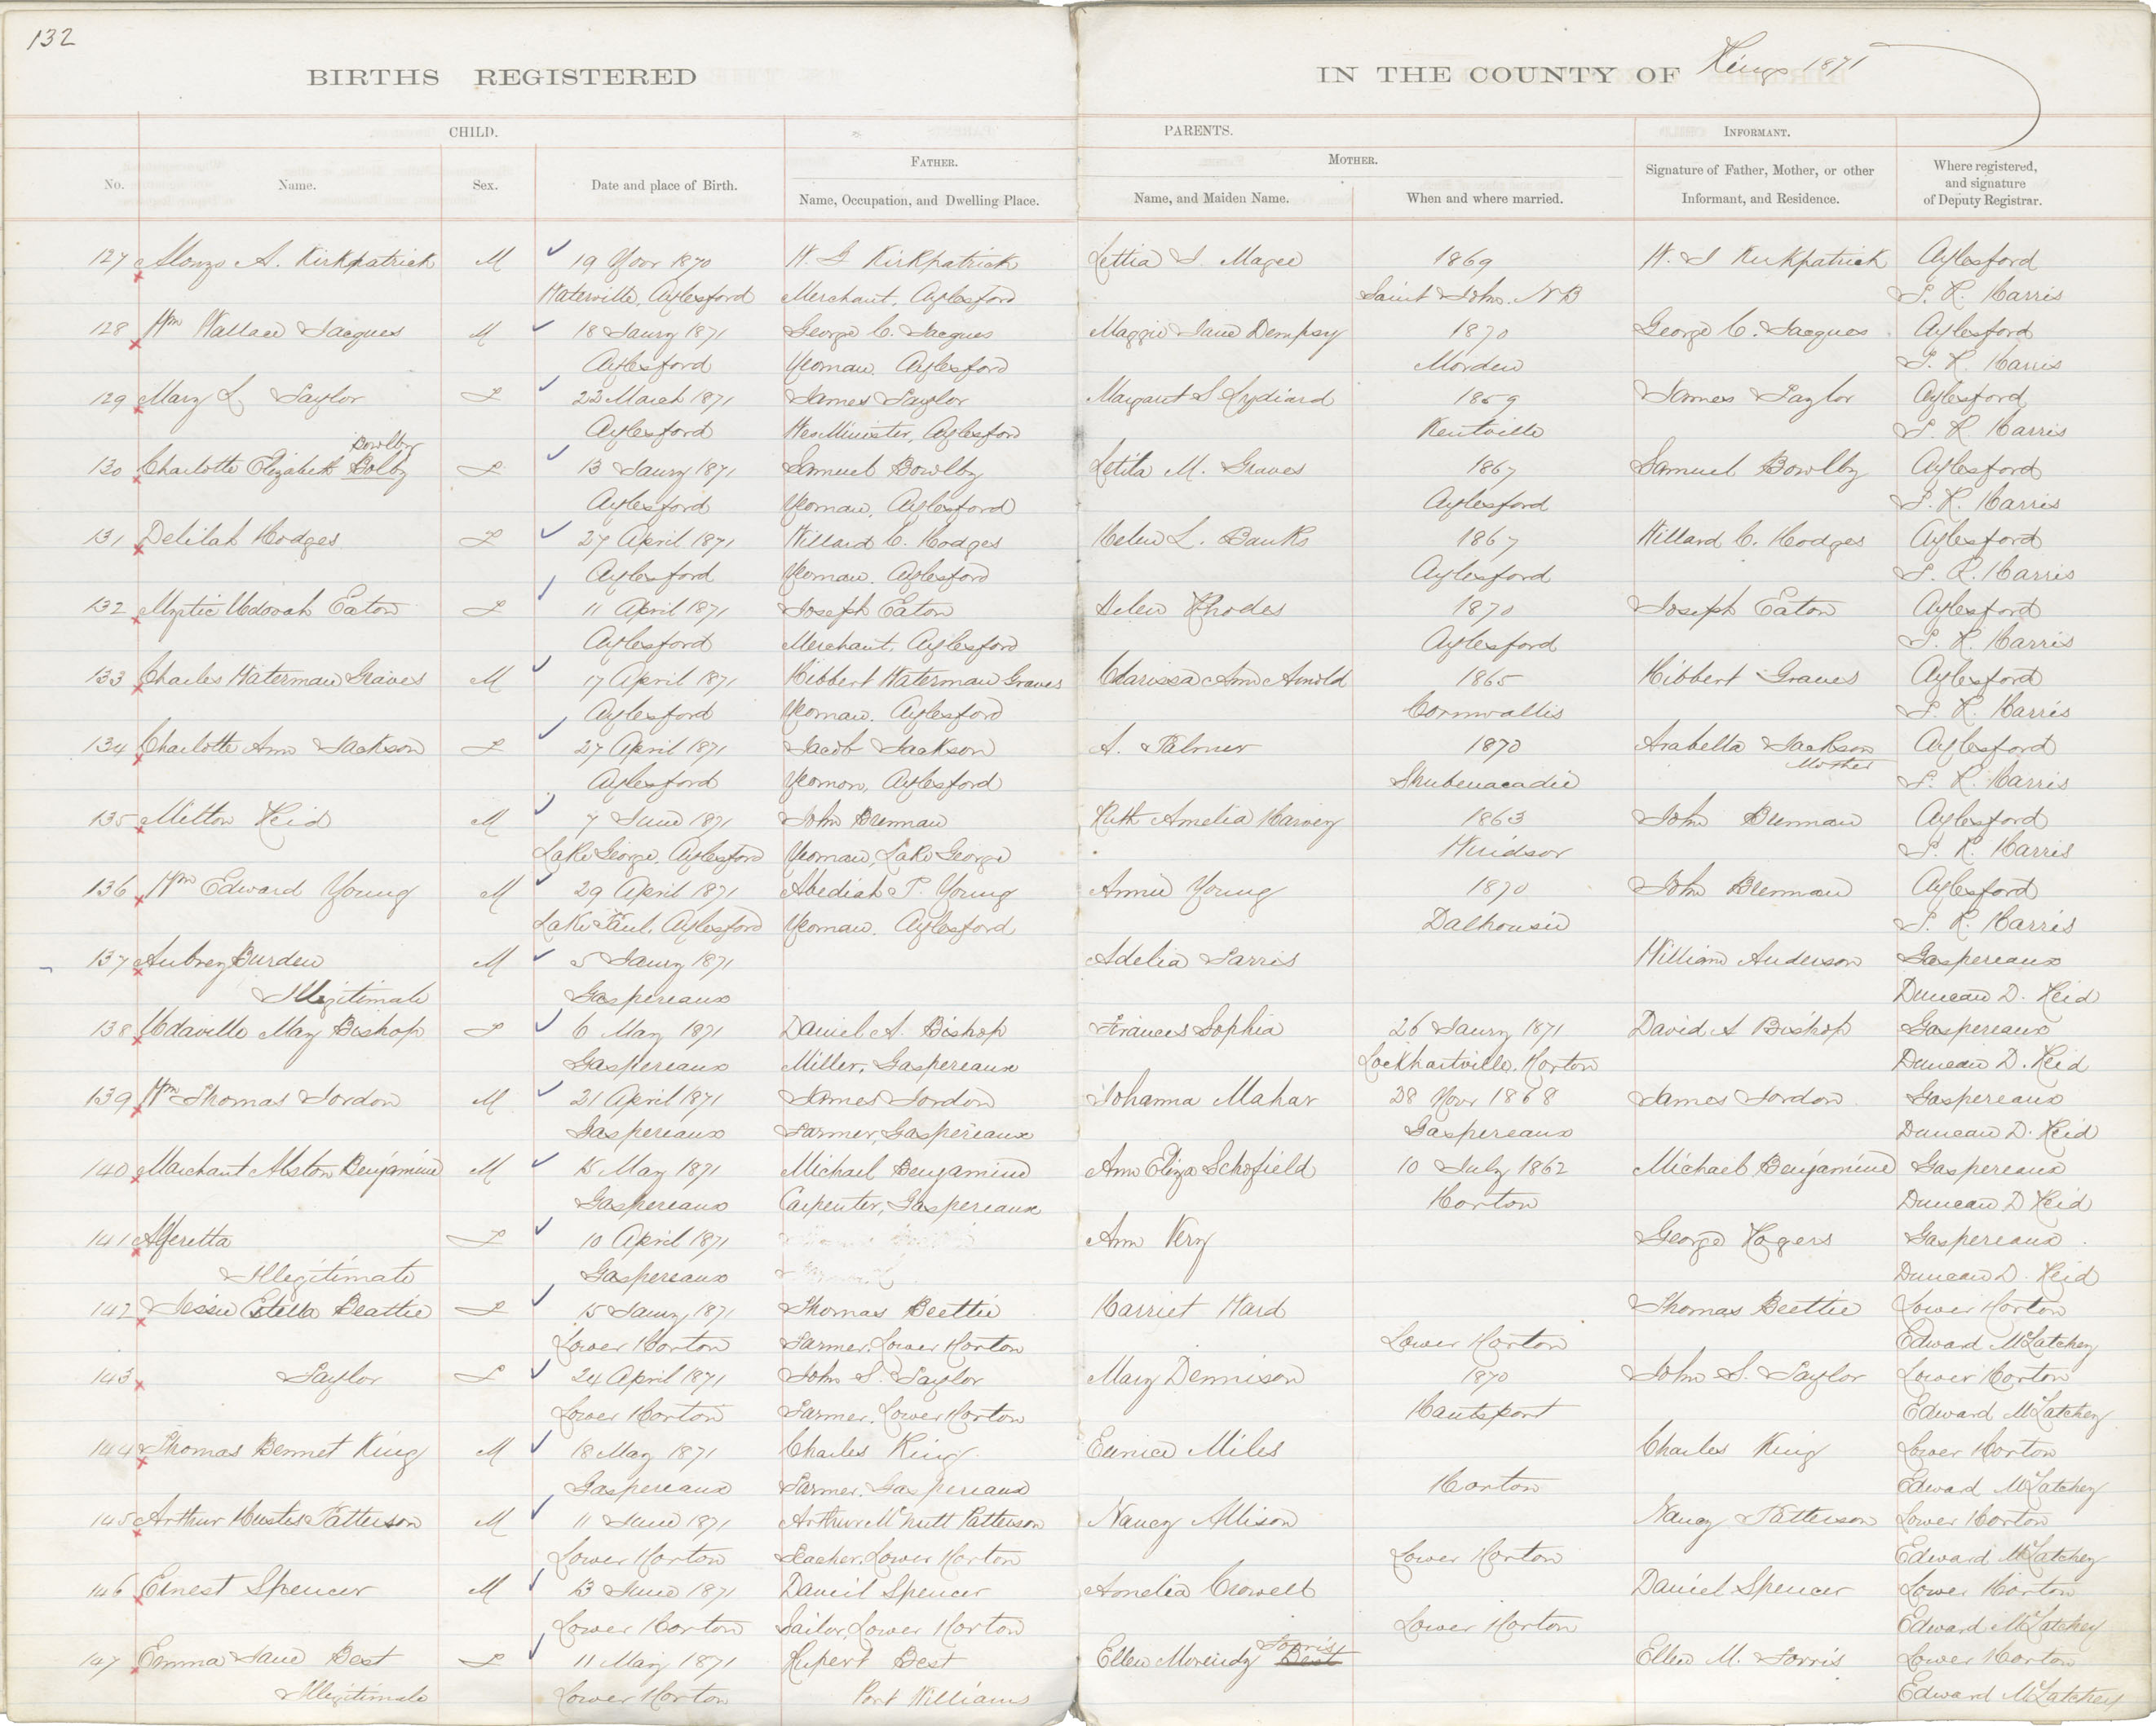 132
BIRTHS REGISTERED IN THE COUNTY OF Kings 1871
CHILD. PARENTS. INFORMANT.
FATHER. MOTHER.
No. Name. Sex. Date and place of Birth. Name, Occupation, and Dwelling Place. Name, and Maiden Name. When and where married. Signature of Father, Mother, or other Informant, and Residence. Where registered, and signature of Deputy Registrar.
127 Alonzo A. Kirkpatrick M 19 Novr 1870 W. J Kirkpatrick Lettia J. Magee 1869 W. J Kirkpatrick Aylesford
Waterville, Aylesford Merchant, Aylesford Saint John. NB S. R. Harris
128 Wm Wallace Jacques M 18 Jaury 1871 George C. Jacques Maggie Jane Dempsy 1870 George C. Jacques Aylesford
Aylesford Yeoman. Aylesford Morden S. R. Harris
129 Mary L. Taylor F 22 March 1871 James Taylor Margaret S Lydiard 1869 James Taylor Aylesford
Aylesford Wes Minister, Aylesford Kentville S. R Harris
Bowlby
130 Charlotte Elizabeth Bolby F 13 Jaury 1871 Samuel Bowlby Letita M. Graves 1867 Samuel Bowlby Aylesford
Aylesford Yeoman, Aylesford Aylesford S. R. Harris
131 Delilah Hodges F 27 April 1871 Willard C. Hodges Helen L. Banks 1867 Willard C. Hodges Aylesford
Aylesford Yeoman. Aylesford Aylesford S. R. Harris
132 Mystic Udovah Eaton F 11 April 1871 Joseph Eaton Helen Rhodes 1870 Joseph Eaton Aylesford
Aylesford Merchant, Aylesford Aylesford S. R. Harris
133 Charles Waterman Graves M 17 April 1871 Hibbert Waterman Graves Clarissa Ann Arnold 1865 Hibbert Graves Aylesford
Aylesford Yeoman. Aylesford Cornwallis S. R. Harris
134 Charlotte Ann Jackson F 27 April 1871 Jacob Jackson A. Palmer 1870 Arabella Jackson Aylesford
Mother
Aylesford Yeoman, Aylesford Shubenacadie S. R. Harris
135 Milton Reid M 7 June 1871 John Brennan Ruth Amelia Harvey 1863 John Brennan Aylesford
Lake George, Aylesford Yeoman, Lake George Windsor S. R. Harris
136 Wm Edward Young M 29 April 1871 Abediah T. Young Annie Young 1870 John Brennan Aylesford
Lake Paul, Aylesford Yeoman. Aylesford Dalhousie S. R. Harris
137 Aubrey Burden M 5 Jaury 1871 Adelia Farris William Anderson Gaspereaux
Illegitimate Gaspereaux Duncan D. Reid
138 Udaville May Bishop F 6 May 1871 Daniel A. Bishop Frances Sophia 26 Jaury 1871 David A Bishop Gaspereaux
Gaspereaux Miller, Gaspereaux Lockhartville, Horton Duncan D. Reid
139 Wm Thomas Jordon M 21 April 1871 James Jordon Johanna Mahar 28 Novr 1868 James Jordon Gaspereaux
Gaspereaux Farmer, Gaspereaux Gaspereaux Duncan D. Reid
140 Marchant Alston Benjamine M 15 May 1871 Michael Benjamine Ann Eliza Schofield 10 July 1862 Michael Benjamine Gaspereaux
Gaspereaux Carpenter, Gaspereaux Horton Duncan D Reid
141 Alferetta F 10 April 1871 Ann Kery George Rogers Gaspereaux
Illegitimate Gaspereaux Duncan D. Reid
142 Jessie Estella Beattie F 15 Jaury 1871 Thomas Beettie Harriet Ward Thomas Beettie Lower Horton
Lower Horton Farmer, Lower Horton Lower Horton Edward McLatchey
143 Taylor F 24 April 1871 John S. Taylor Mary Dennison 1870 John S. Taylor Lower Horton
Lower Horton Farmer, Lower Horton Hantsport Edward McLatchey
144 Thomas Bennet King M 18 May 1871 Charles King Eunice Miles Charles King Lower Horton
Gaspereaux Farmer. Gaspereaux Horton Edward McLatchey
145 Arthur Hustis Patterson M 11 June 1871 Arthur McNutt Patterson Nancy Allison Nancy Patterson Lower Horton
Lower Horton Teacher, Lower Horton Lower Horton Edward McLatchey
146 Ernest Spencer M 13 June 1871 Daniel Spencer Amelia Crowell Daniel Spencer Lower Horton
Lower Horton Sailor, Lower Horton Lower Horton Edward McLatchey
147 Emma Jane Best F 11 May 1871 Rupert Best Ellen Best Ellen M. Forris Lower Horton
Forris
Illegitimate Lower Horton Port Williams Edward McLatchey